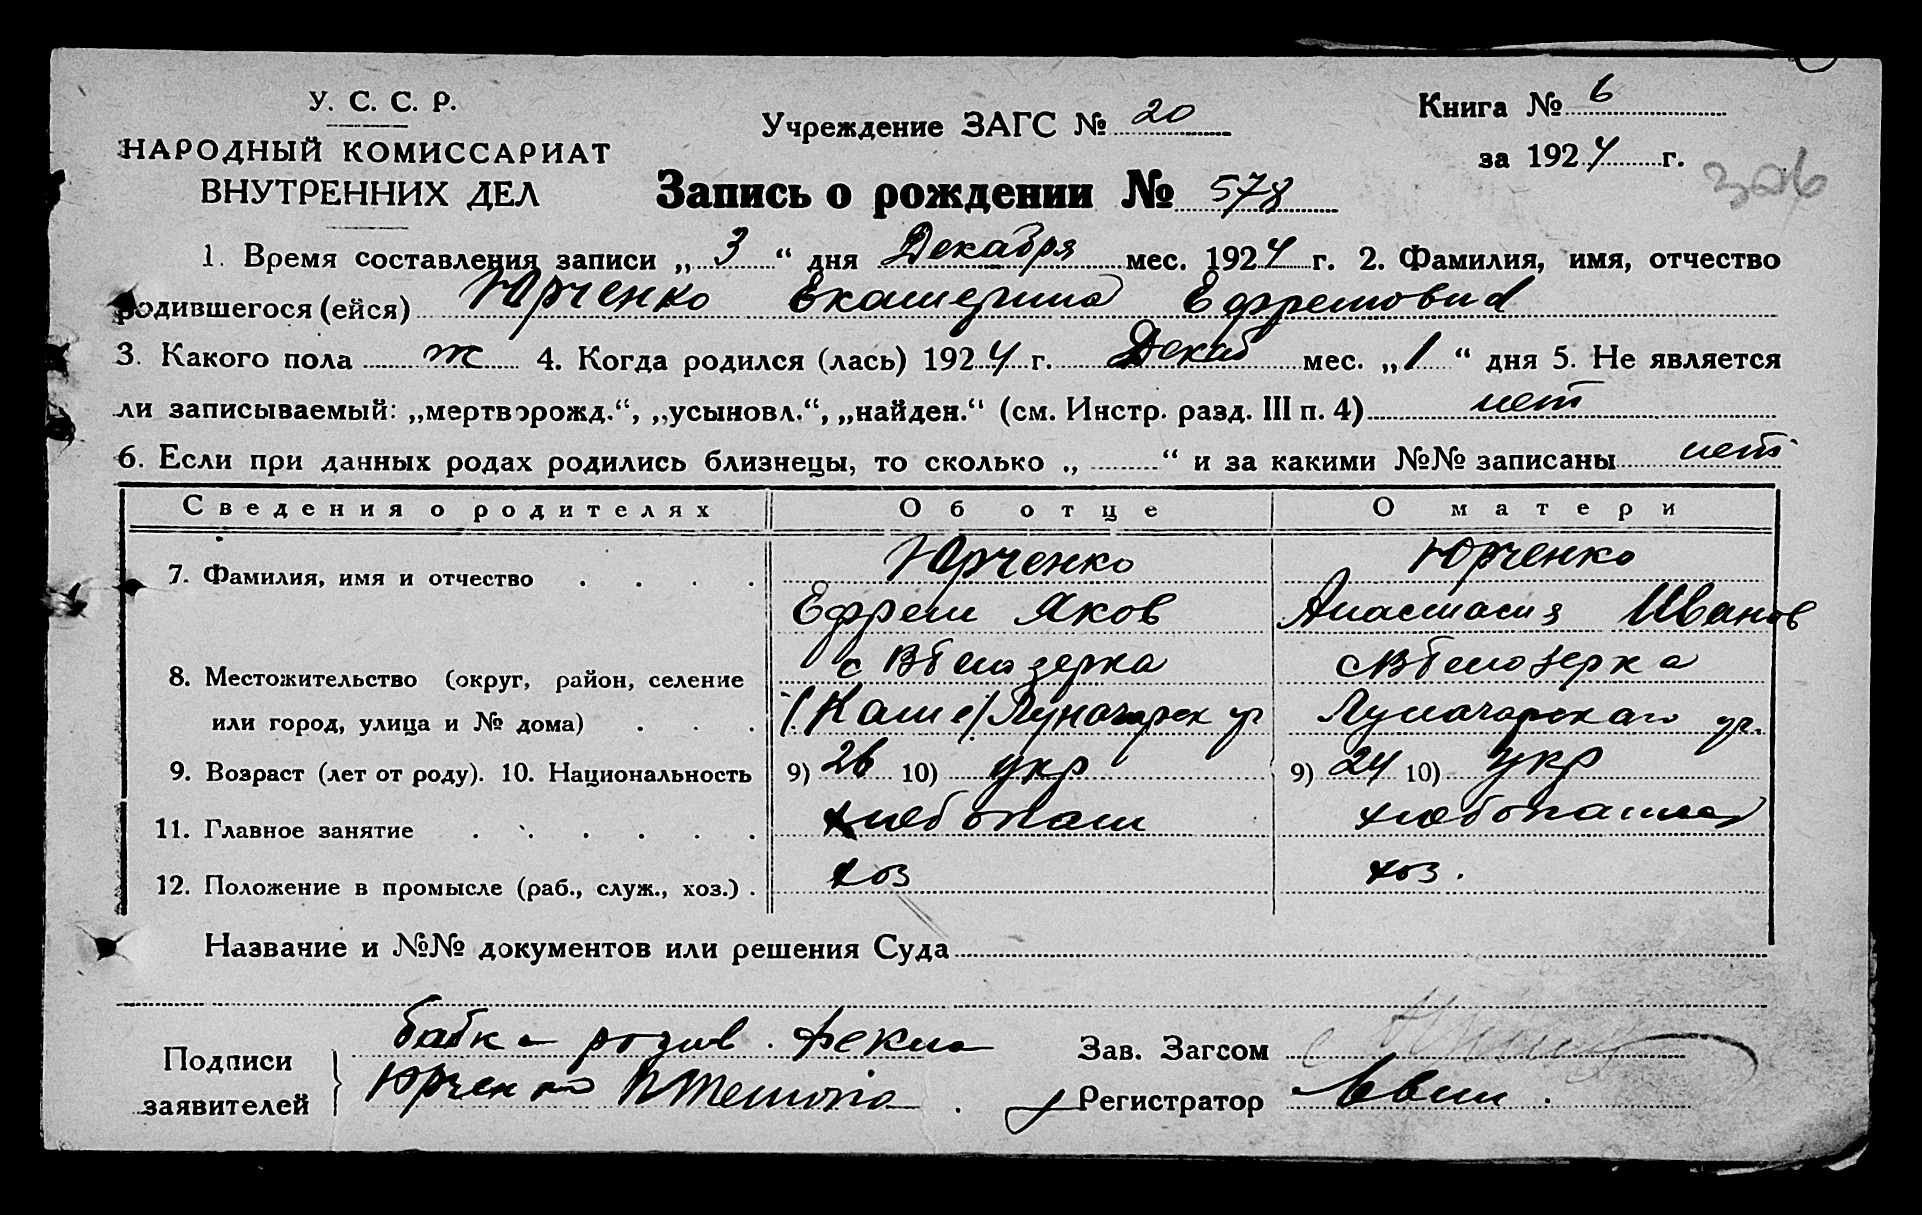 У. С. С. Р.
НАРОДНЫЙ КОМИССАРИАТ
ВНУТРЕННИХ ДЕЛ
Учреждение ЗАГС № 20
Книга № 6
за 1924 г.
306
Запись о рождении № 578
1. Время составления записи „ 3 “ дня Декабря мес. 1924 г. 2. Фамилия, имя, отчество
родившегося (ейся) Юрченко Екатерина Ефремовна
3. Какого пола ж 4. Когда родился (лась) 1924 г. Декаб мес. „ 1 “ дня 5. Не является
ли записываемый: „мертворожд.“, „усыновл.“, „найден.“ (см. Инстр. разд. III п. 4) нет
6. Если при данных родах родились близнецы, то сколько „ “ и за какими №№ записаны нет
Сведения о родителях Об отце О матери
7. Фамилия, имя и отчество Юрченко Юрченко
Ефрем Яков Анастасия Иванов
8. Местожительство (округ, район, селение с Белозерка с Белозерка
или город, улица и № дома) Луначарск ул Луначарскаго ул.
9. Возраст (лет от роду). 10. Национальность 9) 26 10) укр 9) 24 10) укр
11. Главное занятие хлебопаш хлебопашка
12. Положение в промысле (раб., служ., хоз.) хоз хоз.
Название и №№ документов или решения Суда
Подписи заявителей бабка Фекла
Юрченко
Зав. Загсом
Регистратор